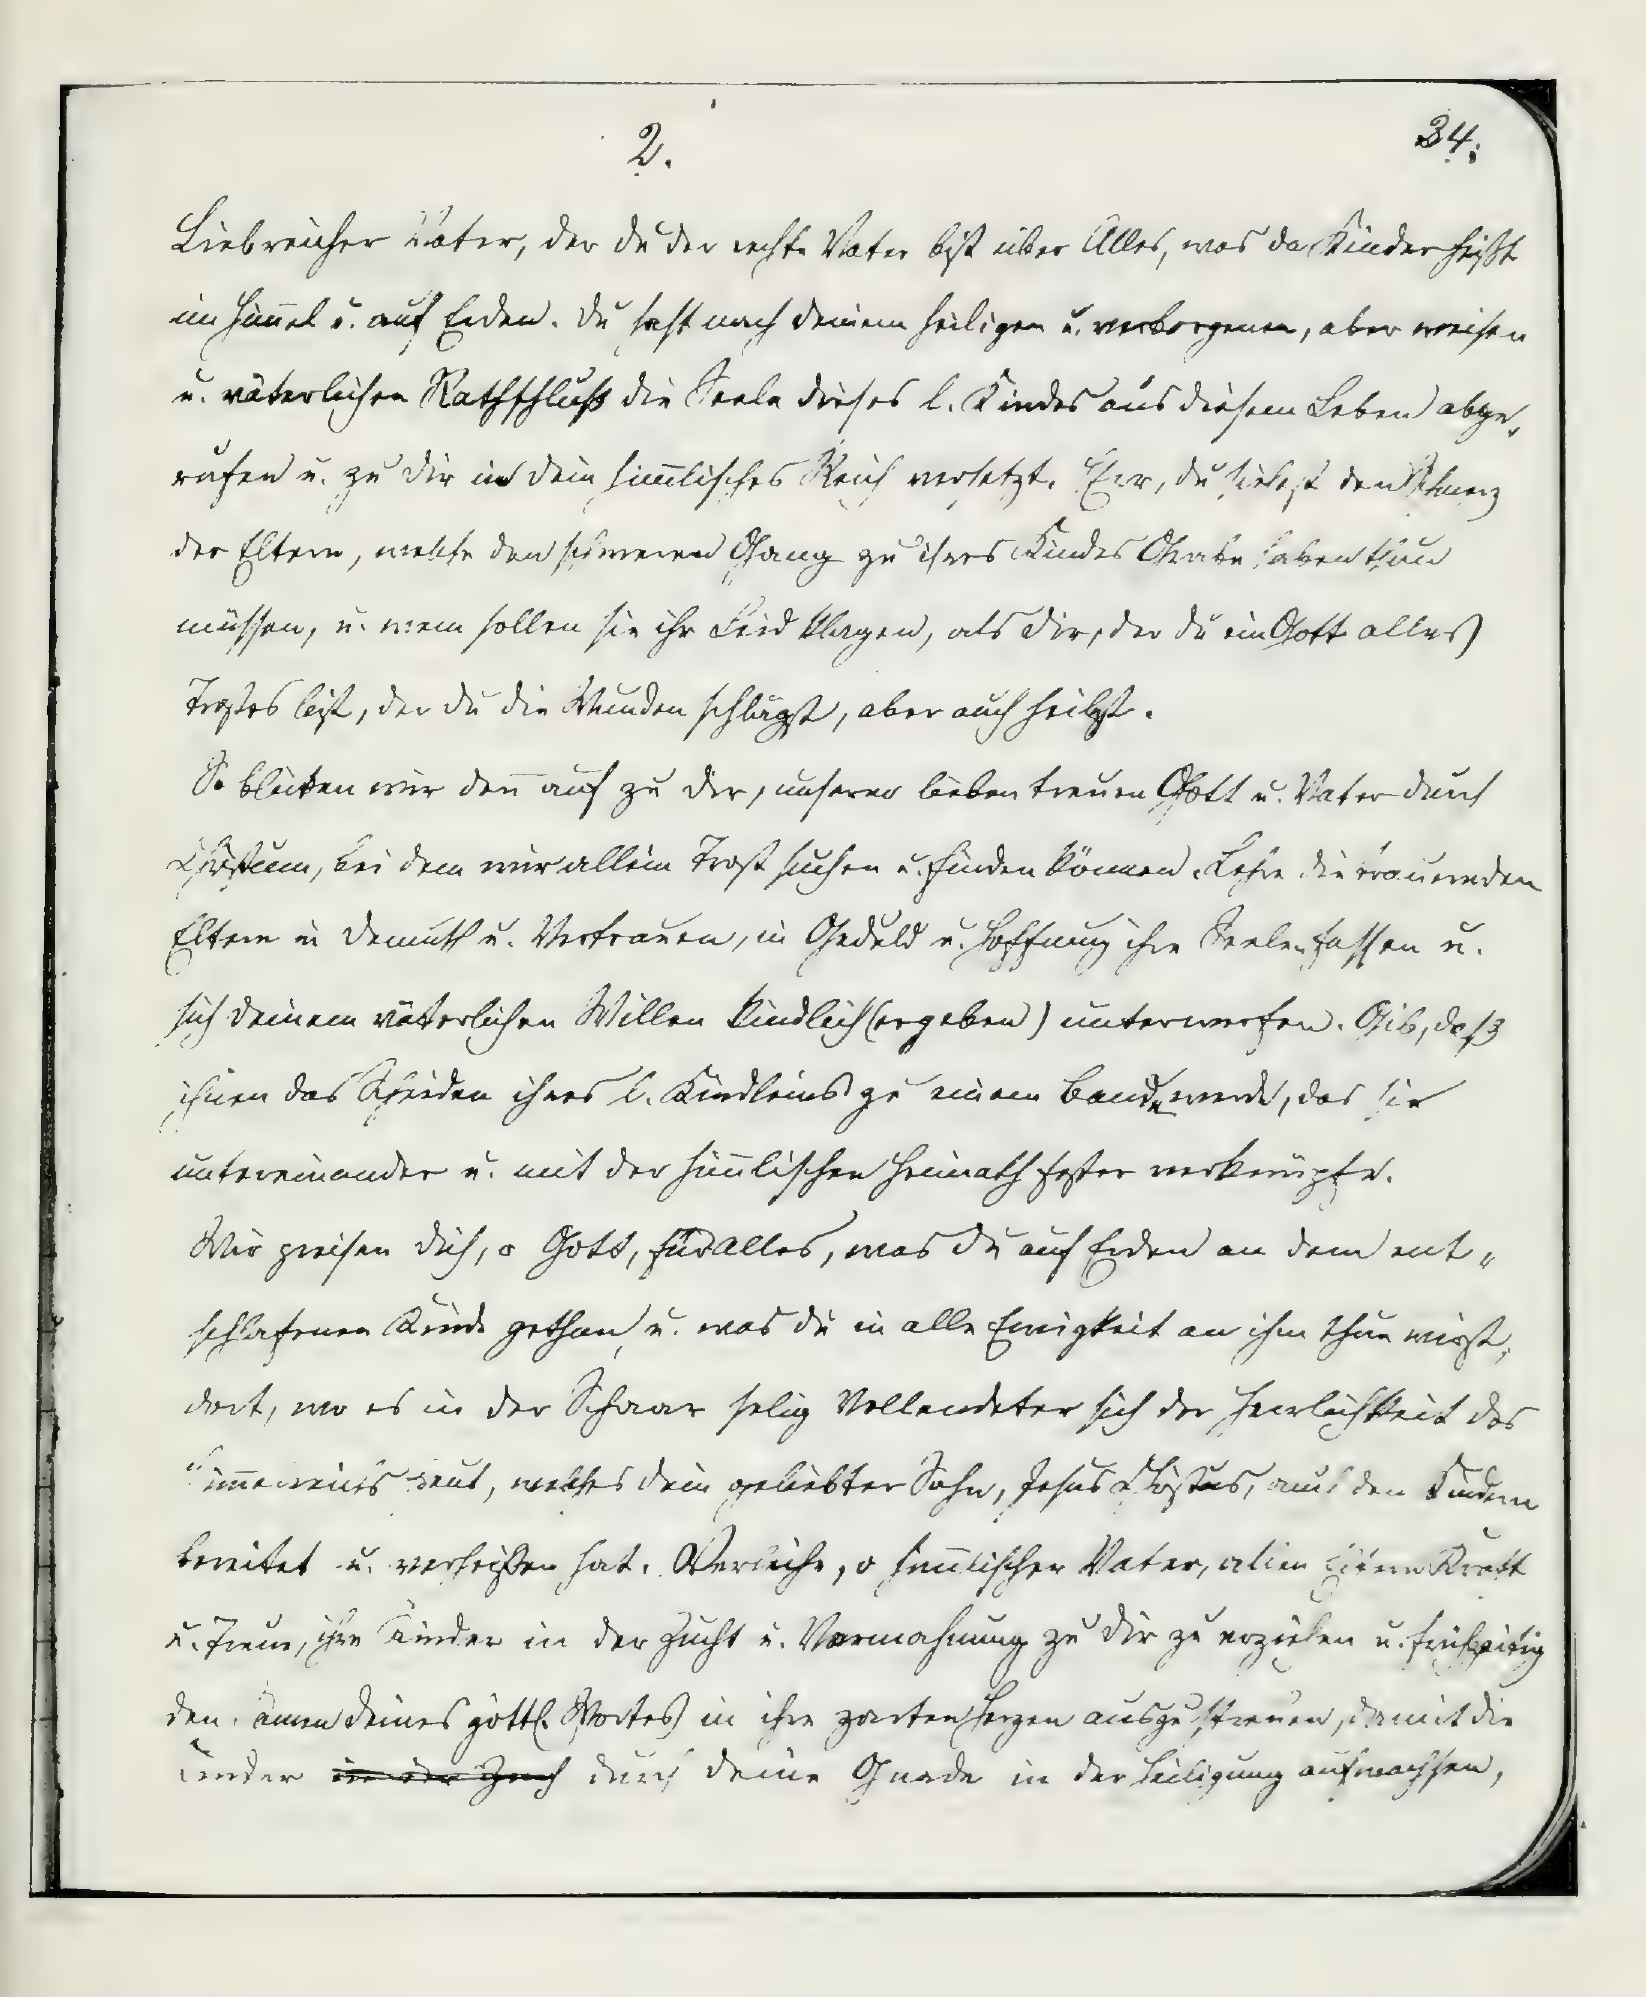 2.
34.
Liebreicher Vater, der du der rechte Vater bist über Alles, was da Kinder heißt
im Him̄el u. auf Erden. Du hast nach deinem heiligen u. verborgenen, aber weisen
u. väterlichen Rathschluß die Seele dieses l. Kindes aus diesem Leben abge„
rufen u. zu dir in dein him̄lisches Reich versetzt. Herr, du siehest den Schmerz
der Eltern, welche den schweren Gang zu ihres Kindes Grabe haben thun
müssen, u. wem sollen sie ihr Leid klagen, als dir, der du ein Gott alles
Trostes bist, der du die Wunden schlägst, aber auch heilst.
So blicken wir den̄ auf zu dir, unserer lieben treuen Gott u. Vater durch
Christum, bei dem wir allein Trost suchen u. finden können. Lehre die trauernden
Eltern in Demuth u. Vertrauen, in Geduld u. Hoffnung ihre Seelen fassen u.
sich deinem väterlichen Willen kindlich (ergeben) unterwerfen. Gib, daß
ihnen das Scheiden ihres l. Kindleins zu einem Bande werde, das sie
untereinander u. mit der him̄lischen Heimath fester verknüpfe.
Wir preisen dich, o Gott, für alles, was du auf Erden an dem ent„
schlafenen Kinde gethan, u. was du in alle Ewigkeit an ihm thun wirst,
dort, wo es in der Schaar selig Vollendeter sich der Herrlichkeit des
Him̄elreichs freut, welches dein geliebter Sohn, Jesus Christus, auch den Kindern
bereitet u. verheißen hat. Verleihe, o him̄lischer Vater, allen Eltern Kraft
u. Treue, ihre Kinder in der Zucht u. Vermahnung zu dir zu erziehen u. frühzeitig
den Samen deines göttl. Wortes in ihre zarten Herzen auszustreuen, damit die
Kinder in der Zuch durch deine Gnade in der Heiligung aufwachsen,